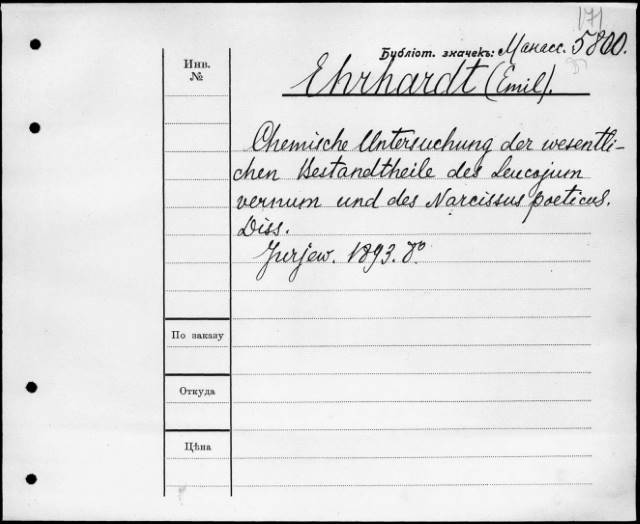 171
Бубліот. значекъ: Манасс. 5800.
Инв.
№
Ehrhardt (Emil).
Chemische Untersuchung der wesentli-
chen Bestandtheile des Leucojum
vernum und des Narcissus poeticus.
Diss.
Jurjew. 1893. 8°
По заказу
Откуда
Цѣна